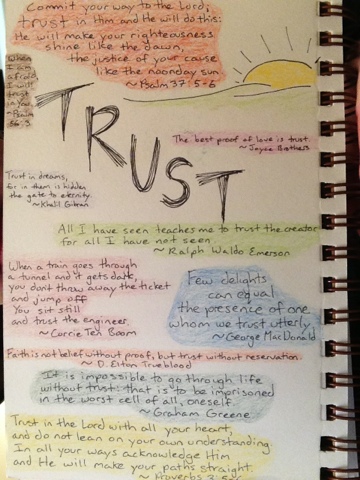 Commit your way to the Lord;
trust in Him and He will do this:
He will make your righteousness
shine like the dawn,
the justice of your cause
like the noonday sun.
~Psalm 37:5-6
When
I am
afraid,
I will
trust
in you.
~Psalm
56:3
TRUST
The best proof of love is trust.
~Joyce Brothers
Trust in dreams,
for in them is hidden
the gate to eternity.
~Khalil Gibran
All I have seen teaches me to trust the creator
for all I have not seen.
~Ralph Waldo Emerson
When a train goes through
a tunnel and it gets dark,
you don't throw away the ticket
and jump off.
You sit still
and trust the engineer.
~Corrie Ten Boom
Few delights
can equal
the presence of one
whom we trust utterly.
~George MacDonald
Faith is not belief without proof, but trust without reservation.
~D. Elton Trueblood
It is impossible to go through life
without trust: that is to be imprisoned
in the worst cell of all, oneself.
~Graham Greene
Trust in the Lord with all your heart,
and do not lean on your own understanding.
In all your ways acknowledge Him
and He will make your paths straight.
~Proverbs 3:5-6